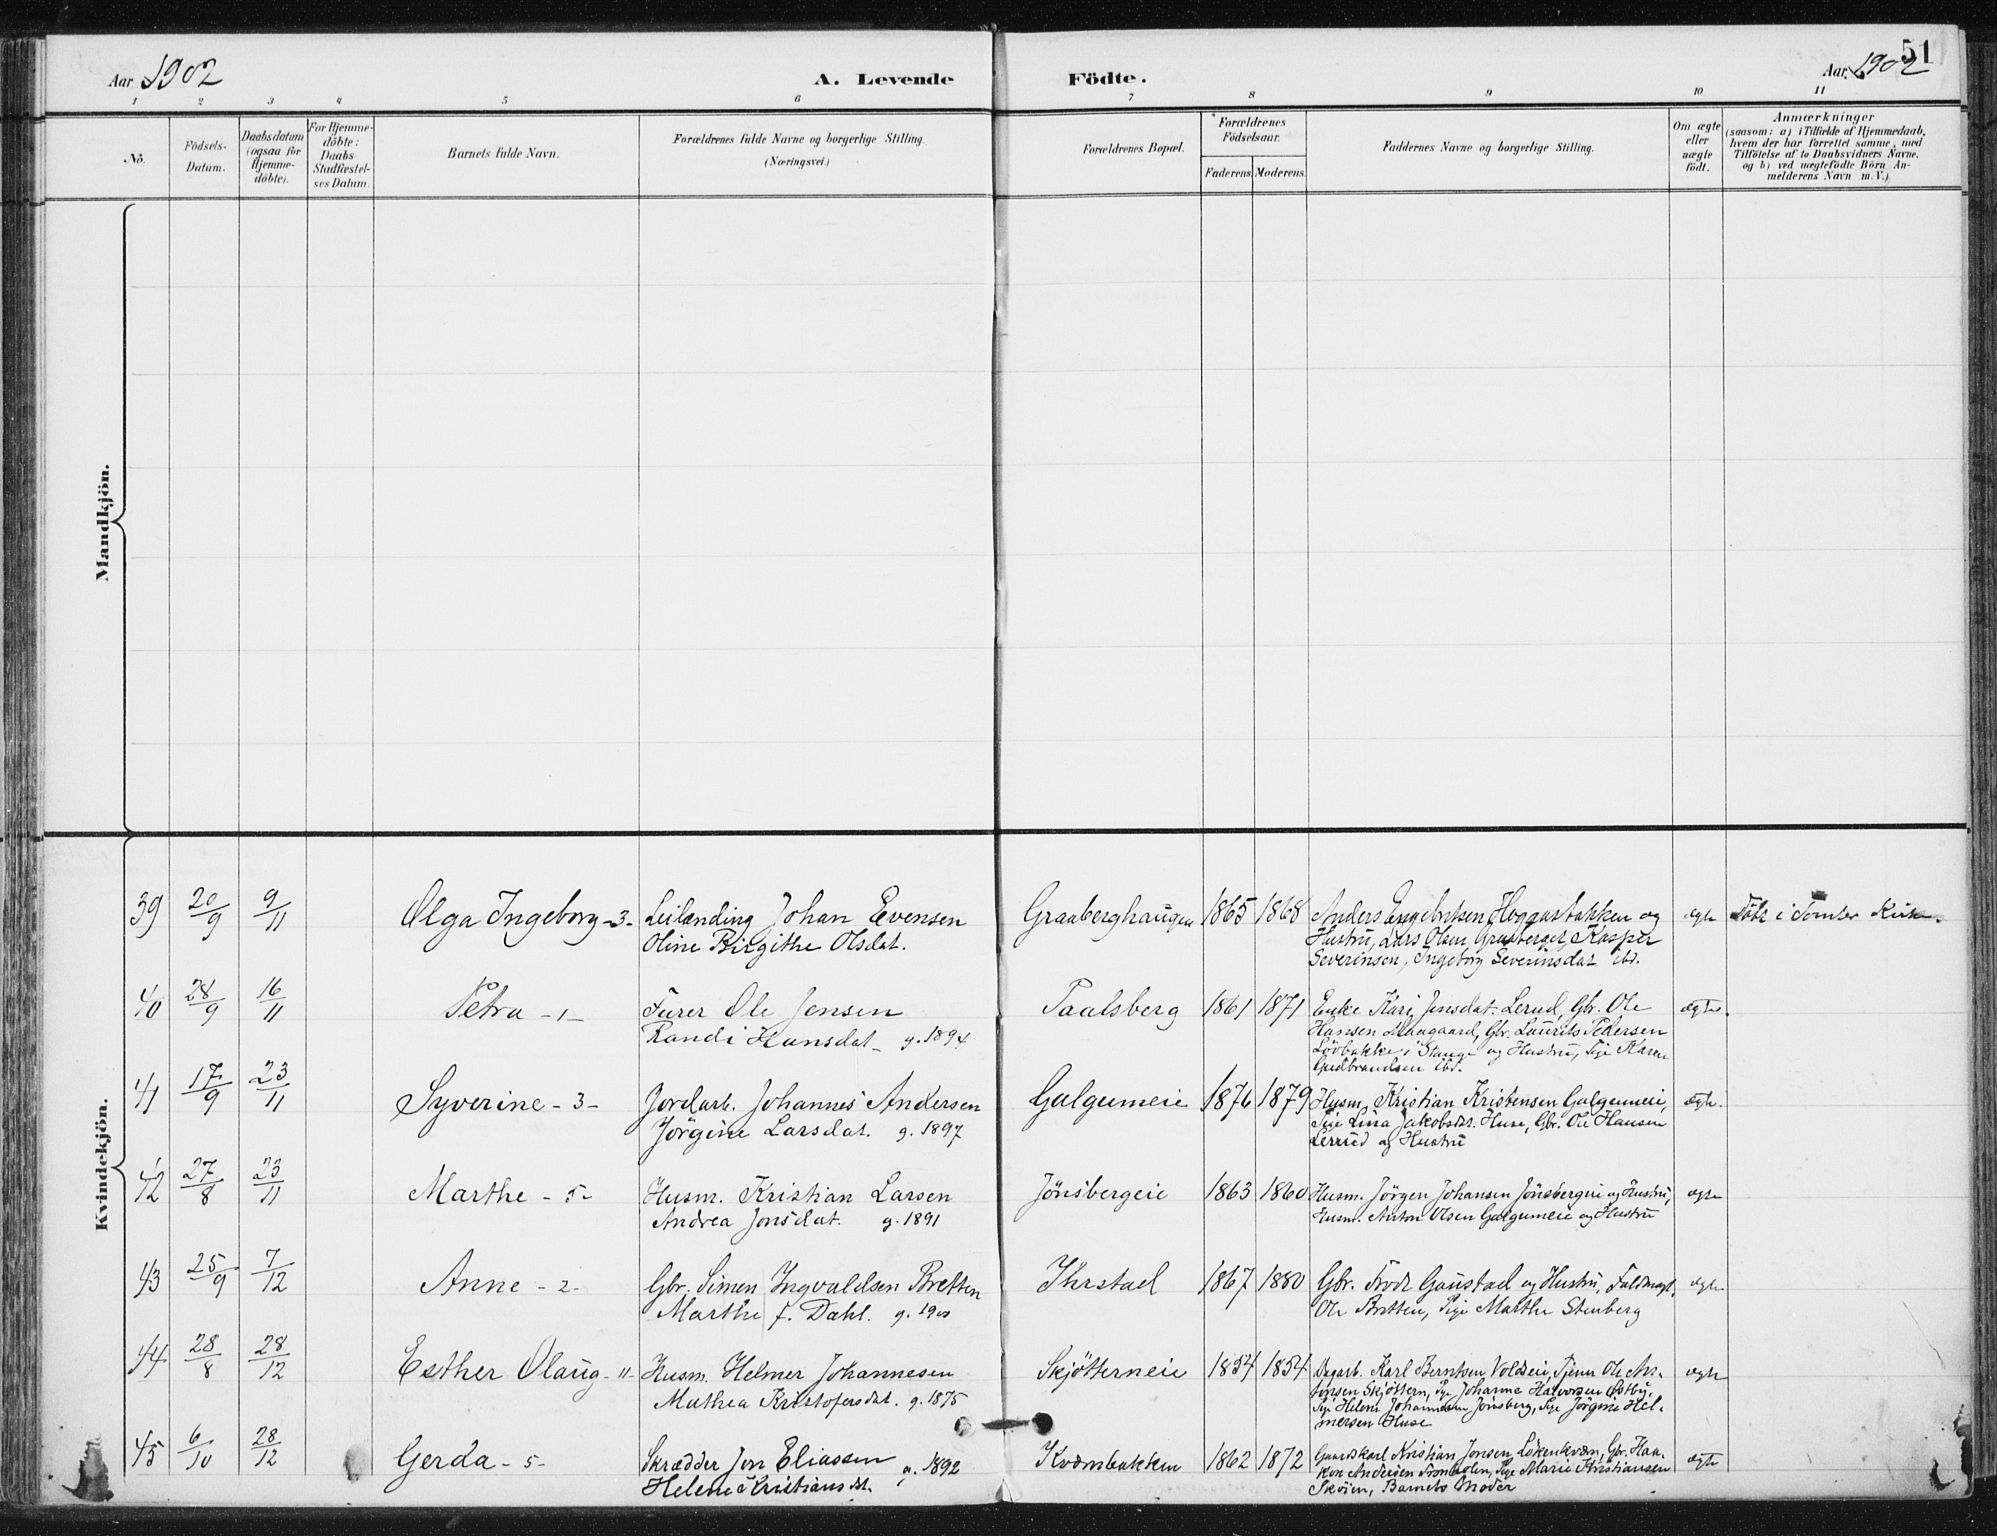 51
Aar 1902 A. Levende Födte. Aar 1902
1 2 3 4 5 6 7 8 9 10 11
Nö.
Födsels-
Datum.
Daabsdatum
(ogsaa för
Hjemme-
döbte).
For Hjemme-
döbte:
Daabs-
Stadfæstel-
ses Datum.
Barnets fulde Navn.
Forældrenes fulde Navne og borgerlige Stilling.
(Næringsvei.)
Forældrenes Bopæl.
Forældrenes
Födselsaar.
Faderens. Moderens.
Faddernes Navne og borgerlige Stilling.
Om ægte
eller
uægte
födt.
Anmærkninger
(saasom: a) i Tilfælde af Hjemmedaab,
hvem der har forrettet samme, med
Tilföielse af to Daabsvidners Navne,
og b) ved uægtefödte Börn An-
melderens Navn m. V.)
Mandkjön.
Kvindekjön.
39 20/9 9/11 Olga Ingeborg -3-
Leilænding Johan Evensen
Oline Birgithe Olsdat.
Graaberghaugen 1865 1868
Anders Engebretsen Hoggarbakken og
Hustru, Lars Olsen Graaberget, Kasper
Severinsen, Ingeborg Severinsdat ibd.
ægte Döbt i Tomter Kirke.
40 28/9 16/11 Petra -1-
Furer Ole Jensen
Randi Hansdat - g. 1894
Paalsberg 1861 1871
Enke Kari Jensdat. Lerud, Gbr. Ole
Hansen Maagaard, Gbr. Laurits Pedersen
Lövbakke i Stange og Hustru, Pige Karen
Gudbrandsen ibd.
ægte.
41 17/9 23/11 Syverine -3-
Jordarb. Johannes Andersen
Jörgine Larsdat. g. 1897
Galgumeie 1876 1879
Husm. Kristian Kristensen Galgumeie,
Pige Lina Jakobsdt. Huse, Gbr. Ole Hansen
Lerrud og Hustru
ægte.
42 27/8 23/11 Marthe -5-
Husm. Kristian Larsen
Andrea Jonsdat. g. 1891
Jönsbergeie 1863 1860
Husm. Jörgen Johansen Jönsbergeie og Hustru,
Husm. Anton Olsen Galgumeie og Hustru
ægte
43 25/9 7/12 Anne -2-
Gbr. Simen Ingvaldsen Bretten
Marthe f. Dahl. g. 1900
Ihrstad 1867 1880
Gbr. Frodr Gaustad og Hustru, Fuldmægt.
Ole Bretten, Pige Marthe Stenberg
ægte
44 28/8 28/12 Esther Olaug -11-
Husm. Helmer Johannesen
Mathea Kristofersdat. g. 1875
Skjötterneie 1854 1854
Dagarb. Karl Berntsen Voldseie, Tjener Ole An-
tonsen Skjöttern, Pige Johanne Halvorsen Östby,
Pige Helene Johannesen Jönsberg, Pige Jörgine Hel-
mersen Huse
ægte
45 6/10 28/12 Gerda -5-
Skrædder Jon Eliassen g. 1892
Helene Kristiansdt.
Kværnbakken 1862 1872
Gaardskarl Kristian Jonsen Lökenkværn, Gbr. Haa-
kon Andersen Tromholen, Pige Marie Kristiansen
Skoien, Barnets Moder
ægte